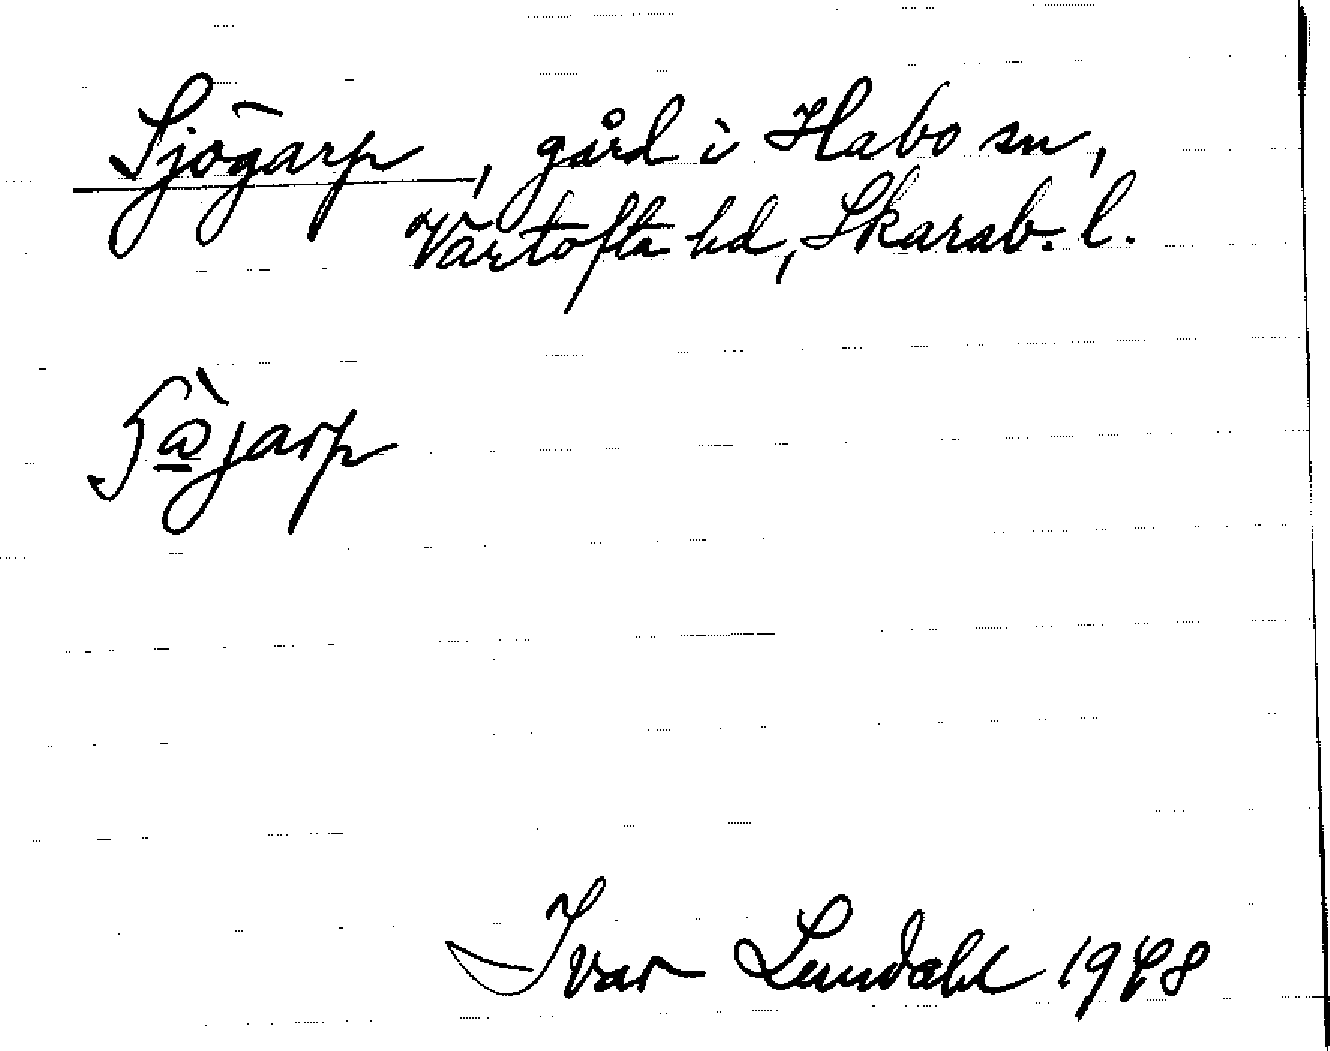 Sjögarp, gård i Habo sn,
Vartofta hd, Skarab. l.
Ivar Lundahl 1948